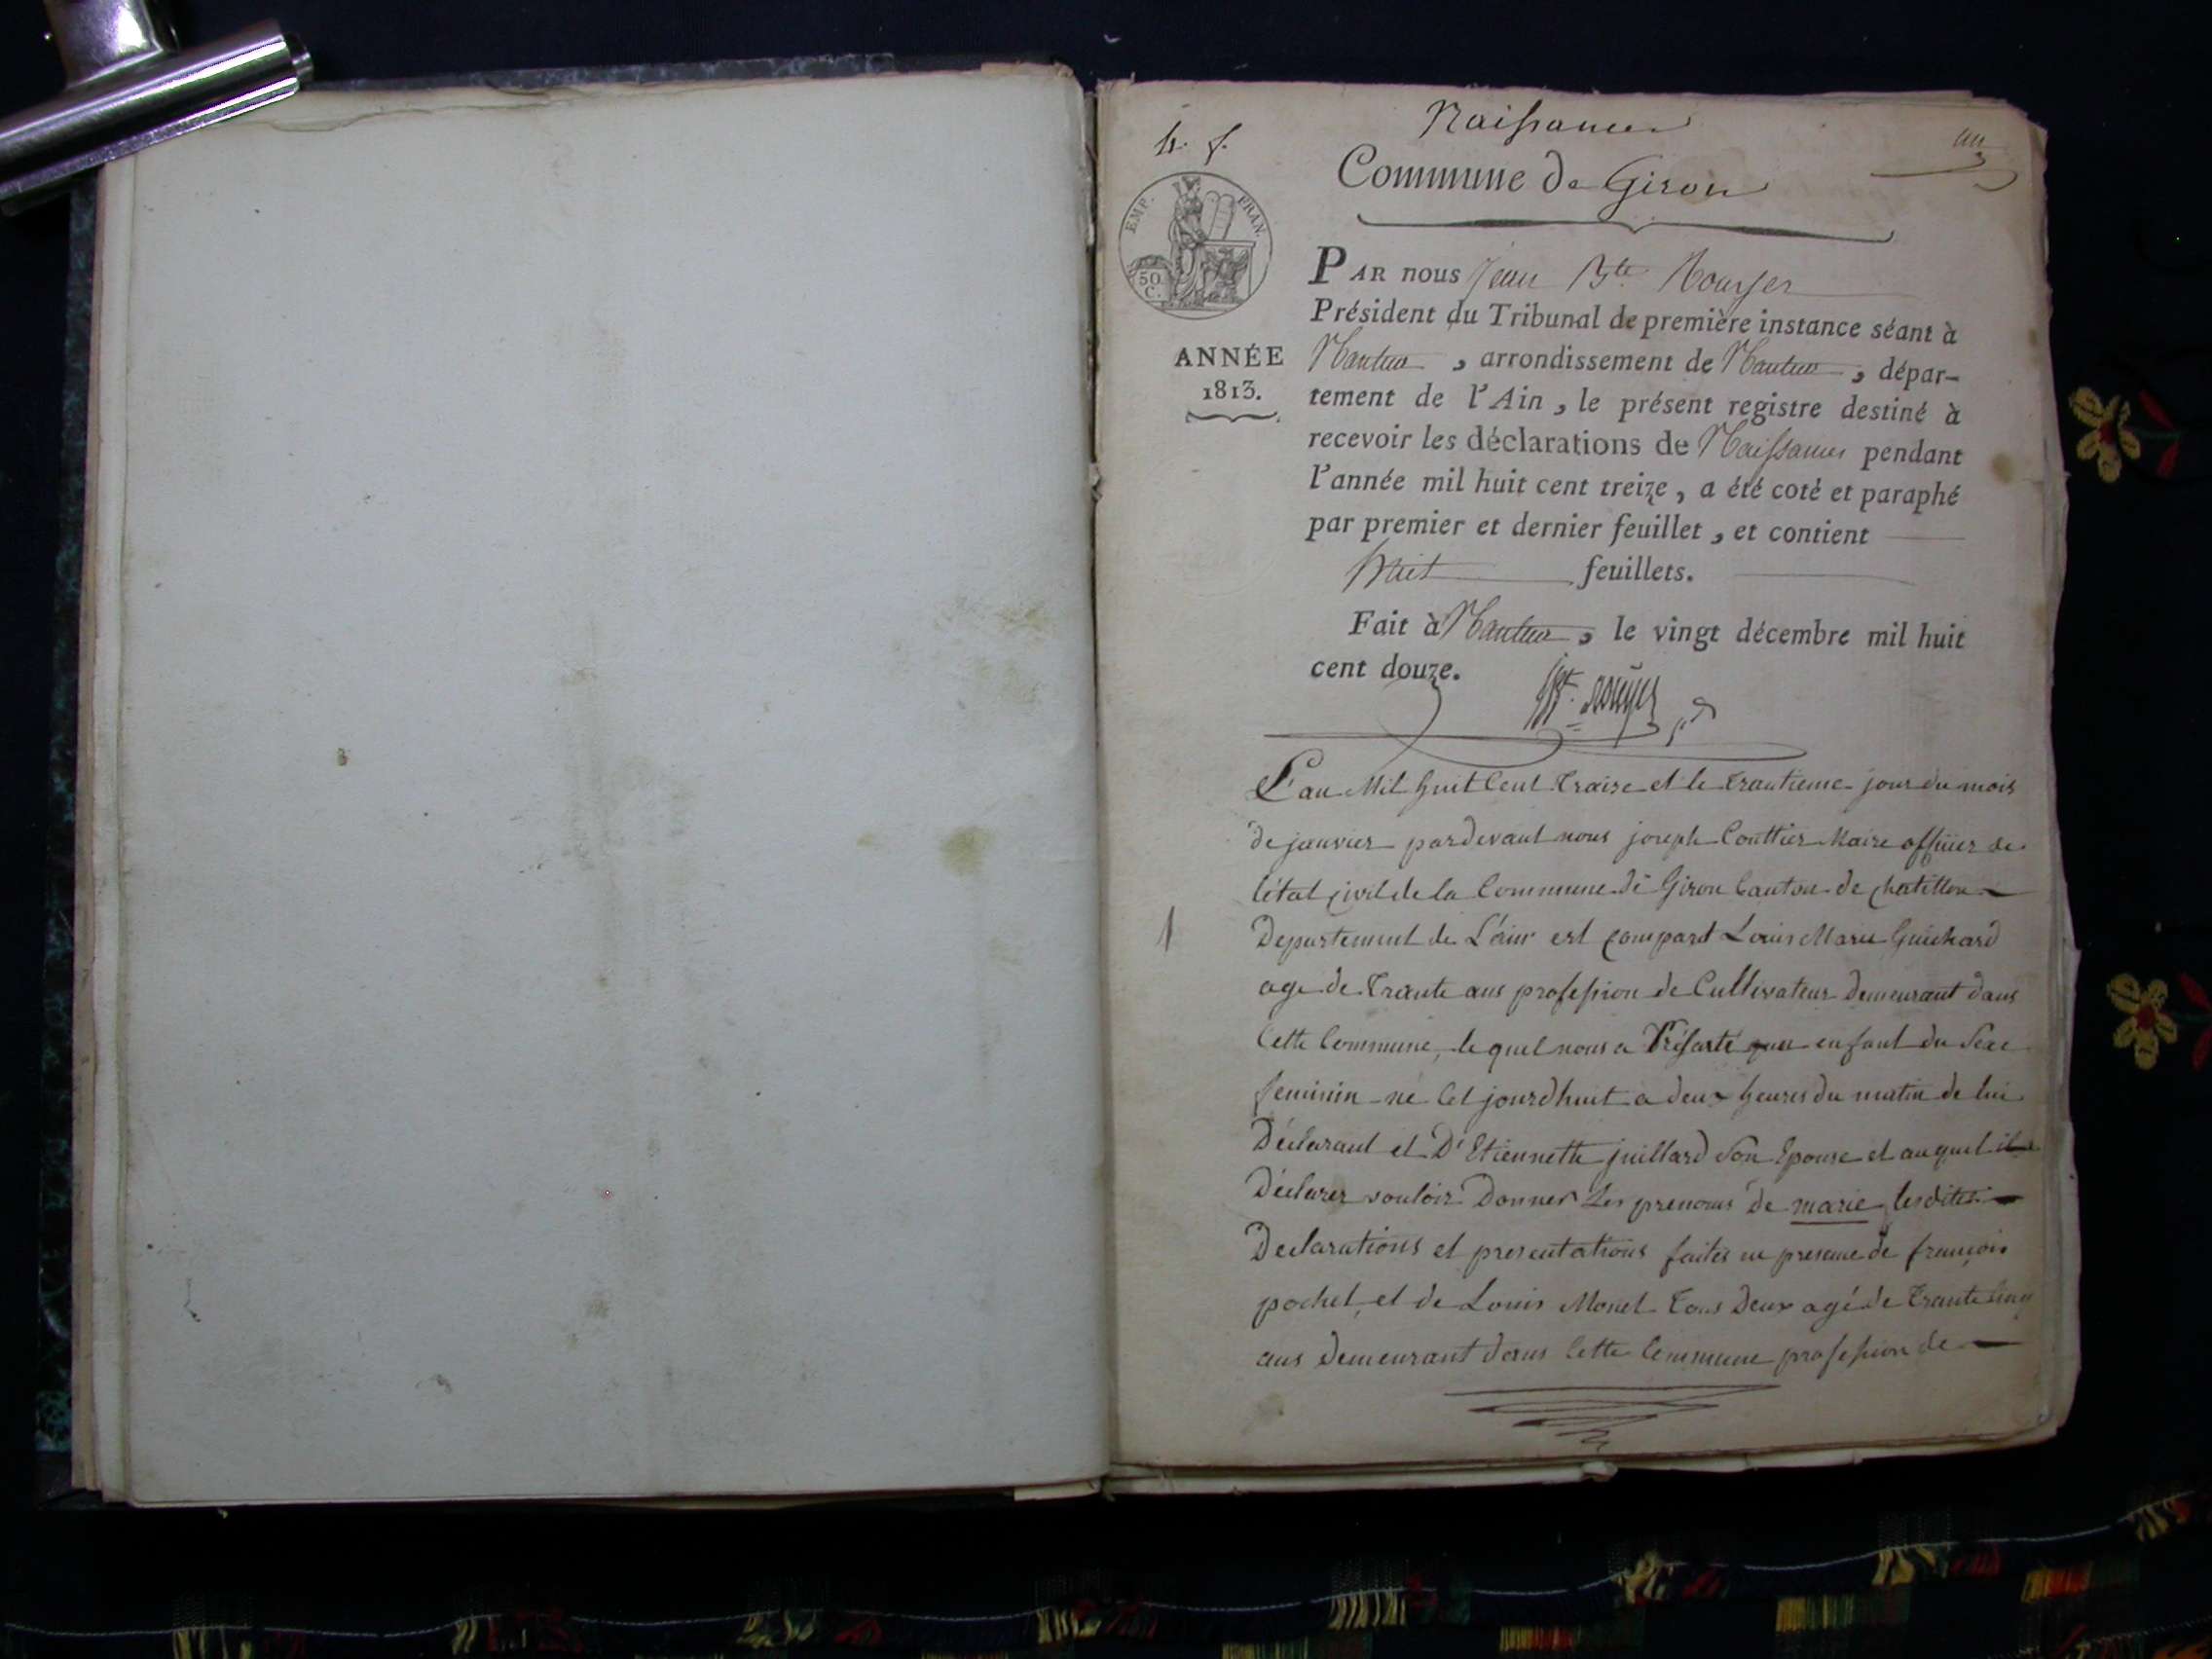 Naissances
h. f.
un
Commune de Giron
EMP. FRAN.
50 C.
PAR nous Jean Bte Rouyer
Président du Tribunal de première instance séant à
ANNÉE
1813.
Nantua , arrondissement de Nantua , dépar-
tement de l'Ain, le présent registre destiné à
recevoir les déclarations de Naissances pendant
l'année mil huit cent treize, a été coté et paraphé
par premier et dernier feuillet, et contient
huit feuillets.
Fait à Nantua , le vingt décembre mil huit
cent douze.
L'an Mil huit Cent Traize et le Trantieme jour du mois
de janvier pardevant nous joseph Couttier Maire officier de
l'état civil de la Commune de Giron Canton de chatillon
1
Departement de L'ain est comparû Louis Marie Guichard
agé de Trante ans profession de Cultivateur Demeurant dans
Cette Commune, le quel nous a Présanté un enfant du Sexe
feminin né Cet jourdhuit a deux heures du matin de lui
Déclarant et De Etiennette juillard Son Epouse et au quel il
Déclarer vouloir Donner Les prenoms De marie lesdites
Declarations et presentations faites en presence de françois
pochet et de Louis Monet Tous Deux agé de Trante Cinq
ans Demeurant dans Cette Commune profession de